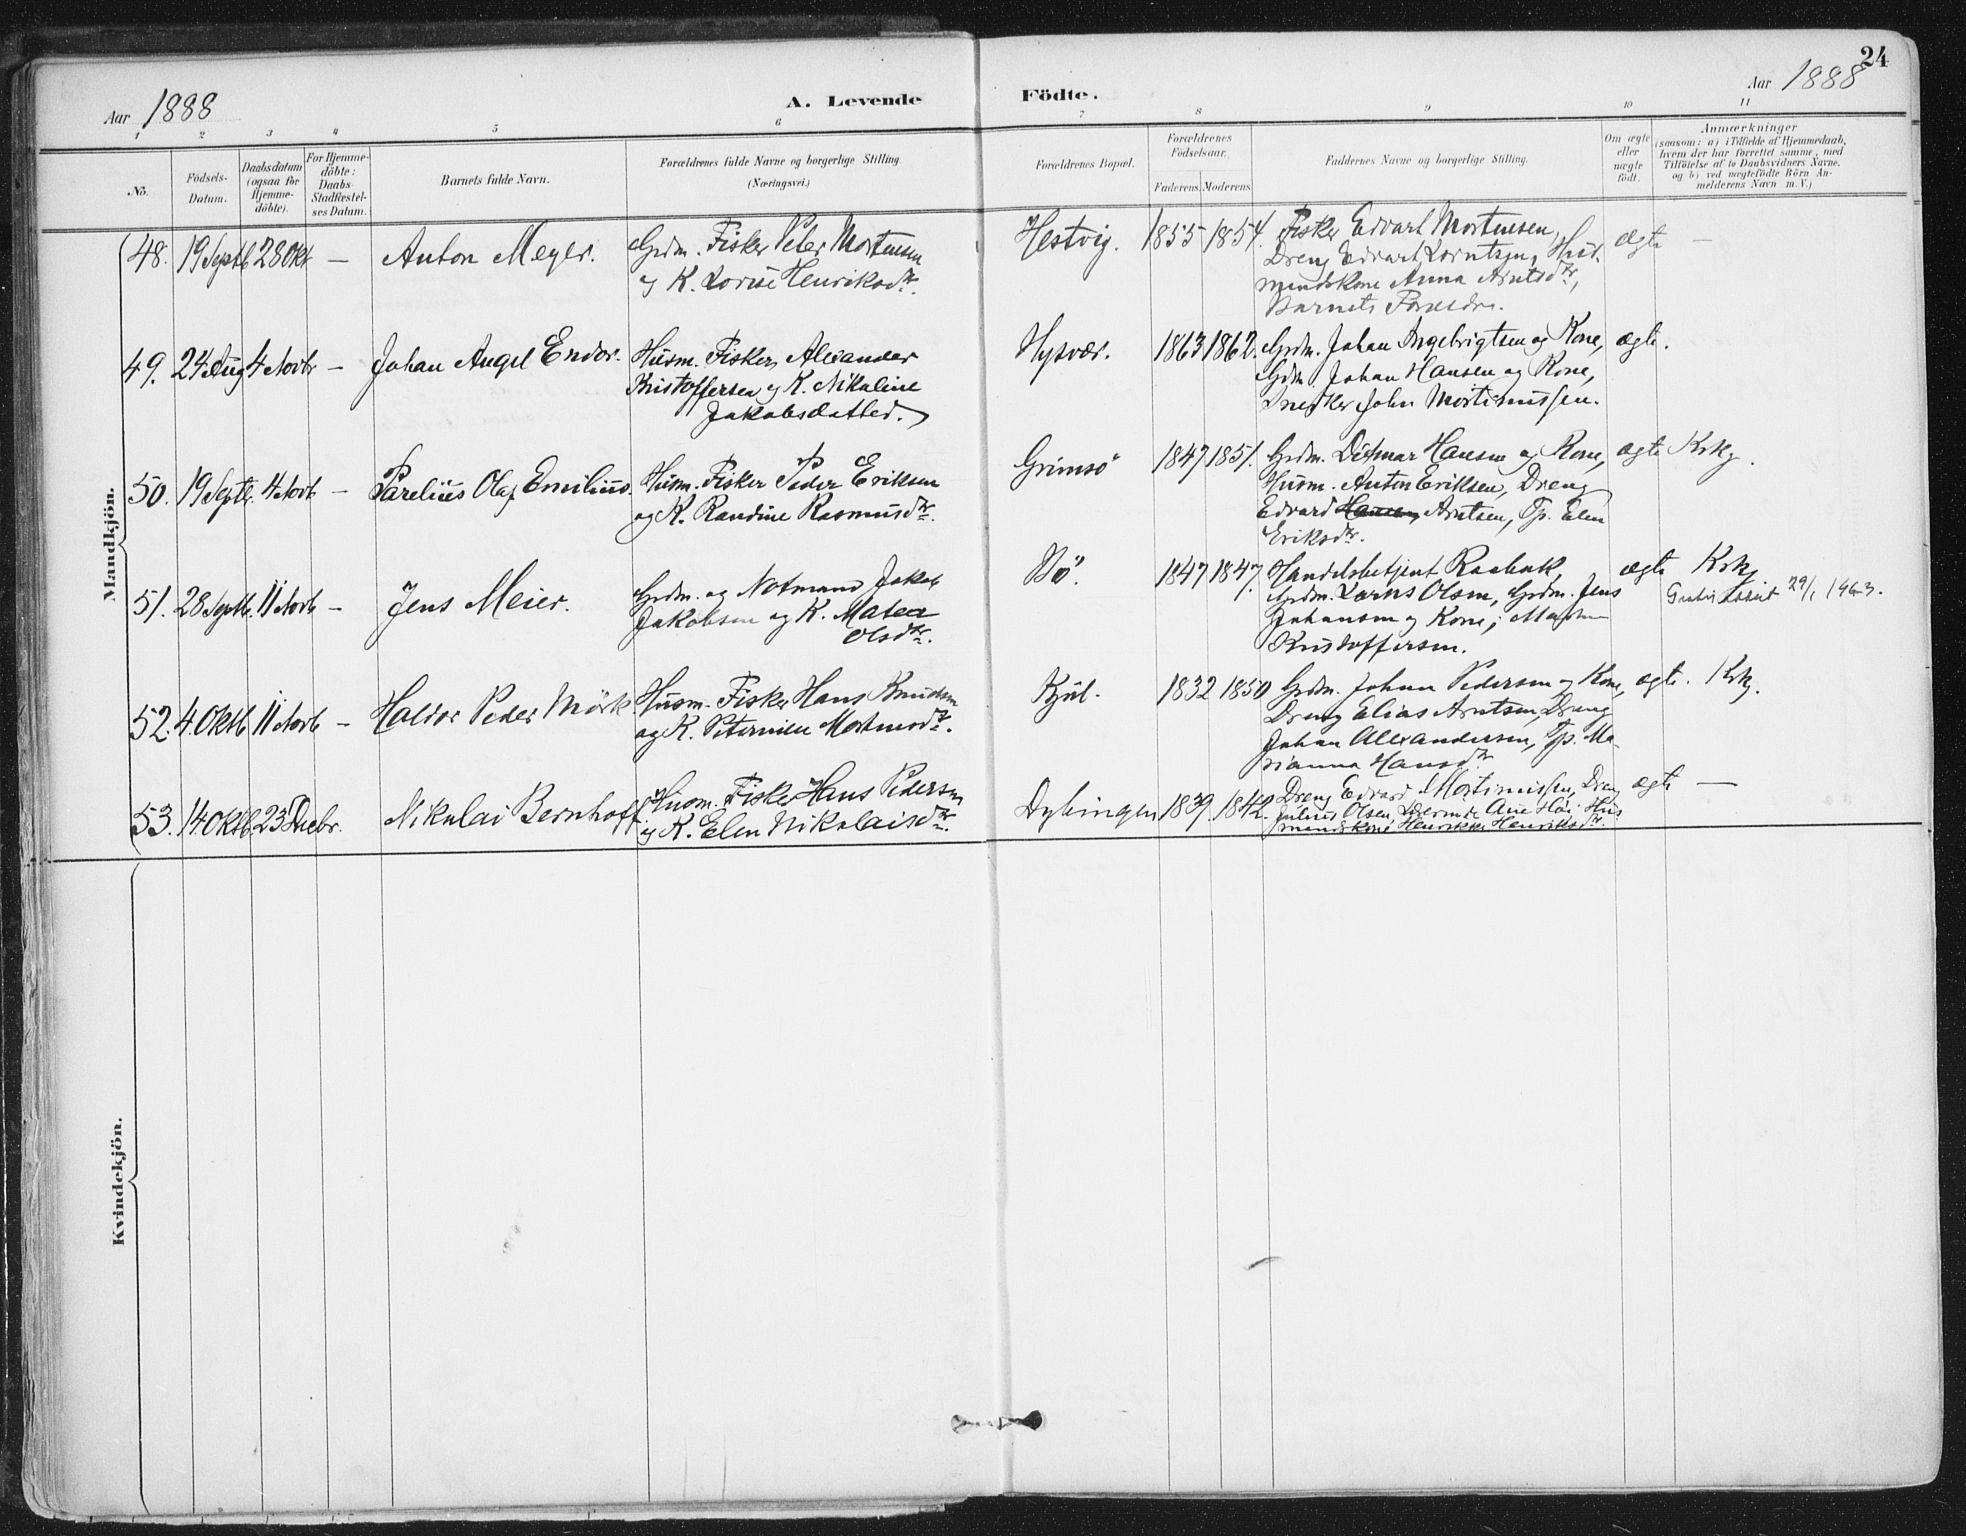 24
Aar 1888
A. Levende
Födte.
Aar 1888
1 2 3 4 5 6 7 8 9 10 11
No.
Födsels-
Datum.
Daabsdatum
(ogsaa för
Hjemme-
döbte).
For Hjemme-
döbte:
Daabs-
Stadfæstel-
ses Datum.
Barnets fulde Navn.
Forældrenes fulde Navne og borgerlige Stilling.
(Næringsvei.)
Forældrenes Bopæl.
Forældrenes
Födselsaar.
Faderens. Moderens.
Faddernes Navne og borgerlige Stilling.
Om ægte
eller
uægte
födt.
Anmærkninger
(saasom: a) i Tilfælde af Hjemmedaab,
hvem der har forrettet samme, med
Tilföielse af to Daabsvidners Navne.
og b) ved uægtefödte Börn An-
melderens Navn m. V.)
Mandkjön.
48. 19 Septb 28 Okt — Anton Meyer.
Grdm. Fisker Peter Mortensen
og K. Lovise Henriksdtr.
Hestvig. 1855 1854.
Fisker Edvart Mortensen,
Dreng Edvart Lorntsen, Hus-
mandskone Anna Arntsdtr,
Barnets Forældre.
ægte —
49. 24 Aug 4 Novb — Johan Angel Endor.
Husm. Fisker Alexander
Kristoffersen og K. Nikoline
Jakobsdatter.
Hysvær. 1863 1862.
Grdm. Johan Ingebrigtsen og Kone,
Grdm. Johan Hansen og Kone,
Snedker John Mortinussen.
ægte.
50. 19 Septb. 4 Novb — Parelius Olaf Emilius.
Husm. Fisker Peder Eriksen
og K. Randine Rasmusdtr.
Grimsö 1847 1851.
Grdm. Ditmar Hansen og Kone,
Husm. Anton Eriksen, Dreng
Edvard Hansen, Arntsen, Tp. Elen
Eriksdtr.
ægte Krkj.
51. 28 Septb. 11 Novb — Jens Meier.
Grdm. og Notmand Jakob
Jakobsen og K. Matea
Olsdtr.
Bö. 1847 1847.
Handelsbetjent Raabak,
Grdm. Lorns Olsen, Grdm. Jens
Johansen og Kone;
Kristoffersen.
ægte Krkj
29/1 1963.
52. 4 Oktb 11 Novb — Haldor Peder Mörk.
Husm. Fisker Hans Knudsen
og K. Petermine Mortensdtr.
Kjul. 1832 1850
Grdm. Johan Pedersen og Kone,
Dreng Elias Arntsen, Dreng
Johan Alexandersen, Tp. Ma-
rianna Hansdtr.
ægte. Krkj.
53. 14 Oktb. 23 Decbr. Nikolai Bernhoff.
Husm. Fisker Hans Pedersen
og K. Elen Nikolaisdtr.
Dybingen 1839. 1842.
Dreng Edvard Mortinussen, Dreng
Julius Olsen, Hus-
mandskone Henrikke Henriksdtr.
ægte —
Kvindekjön.